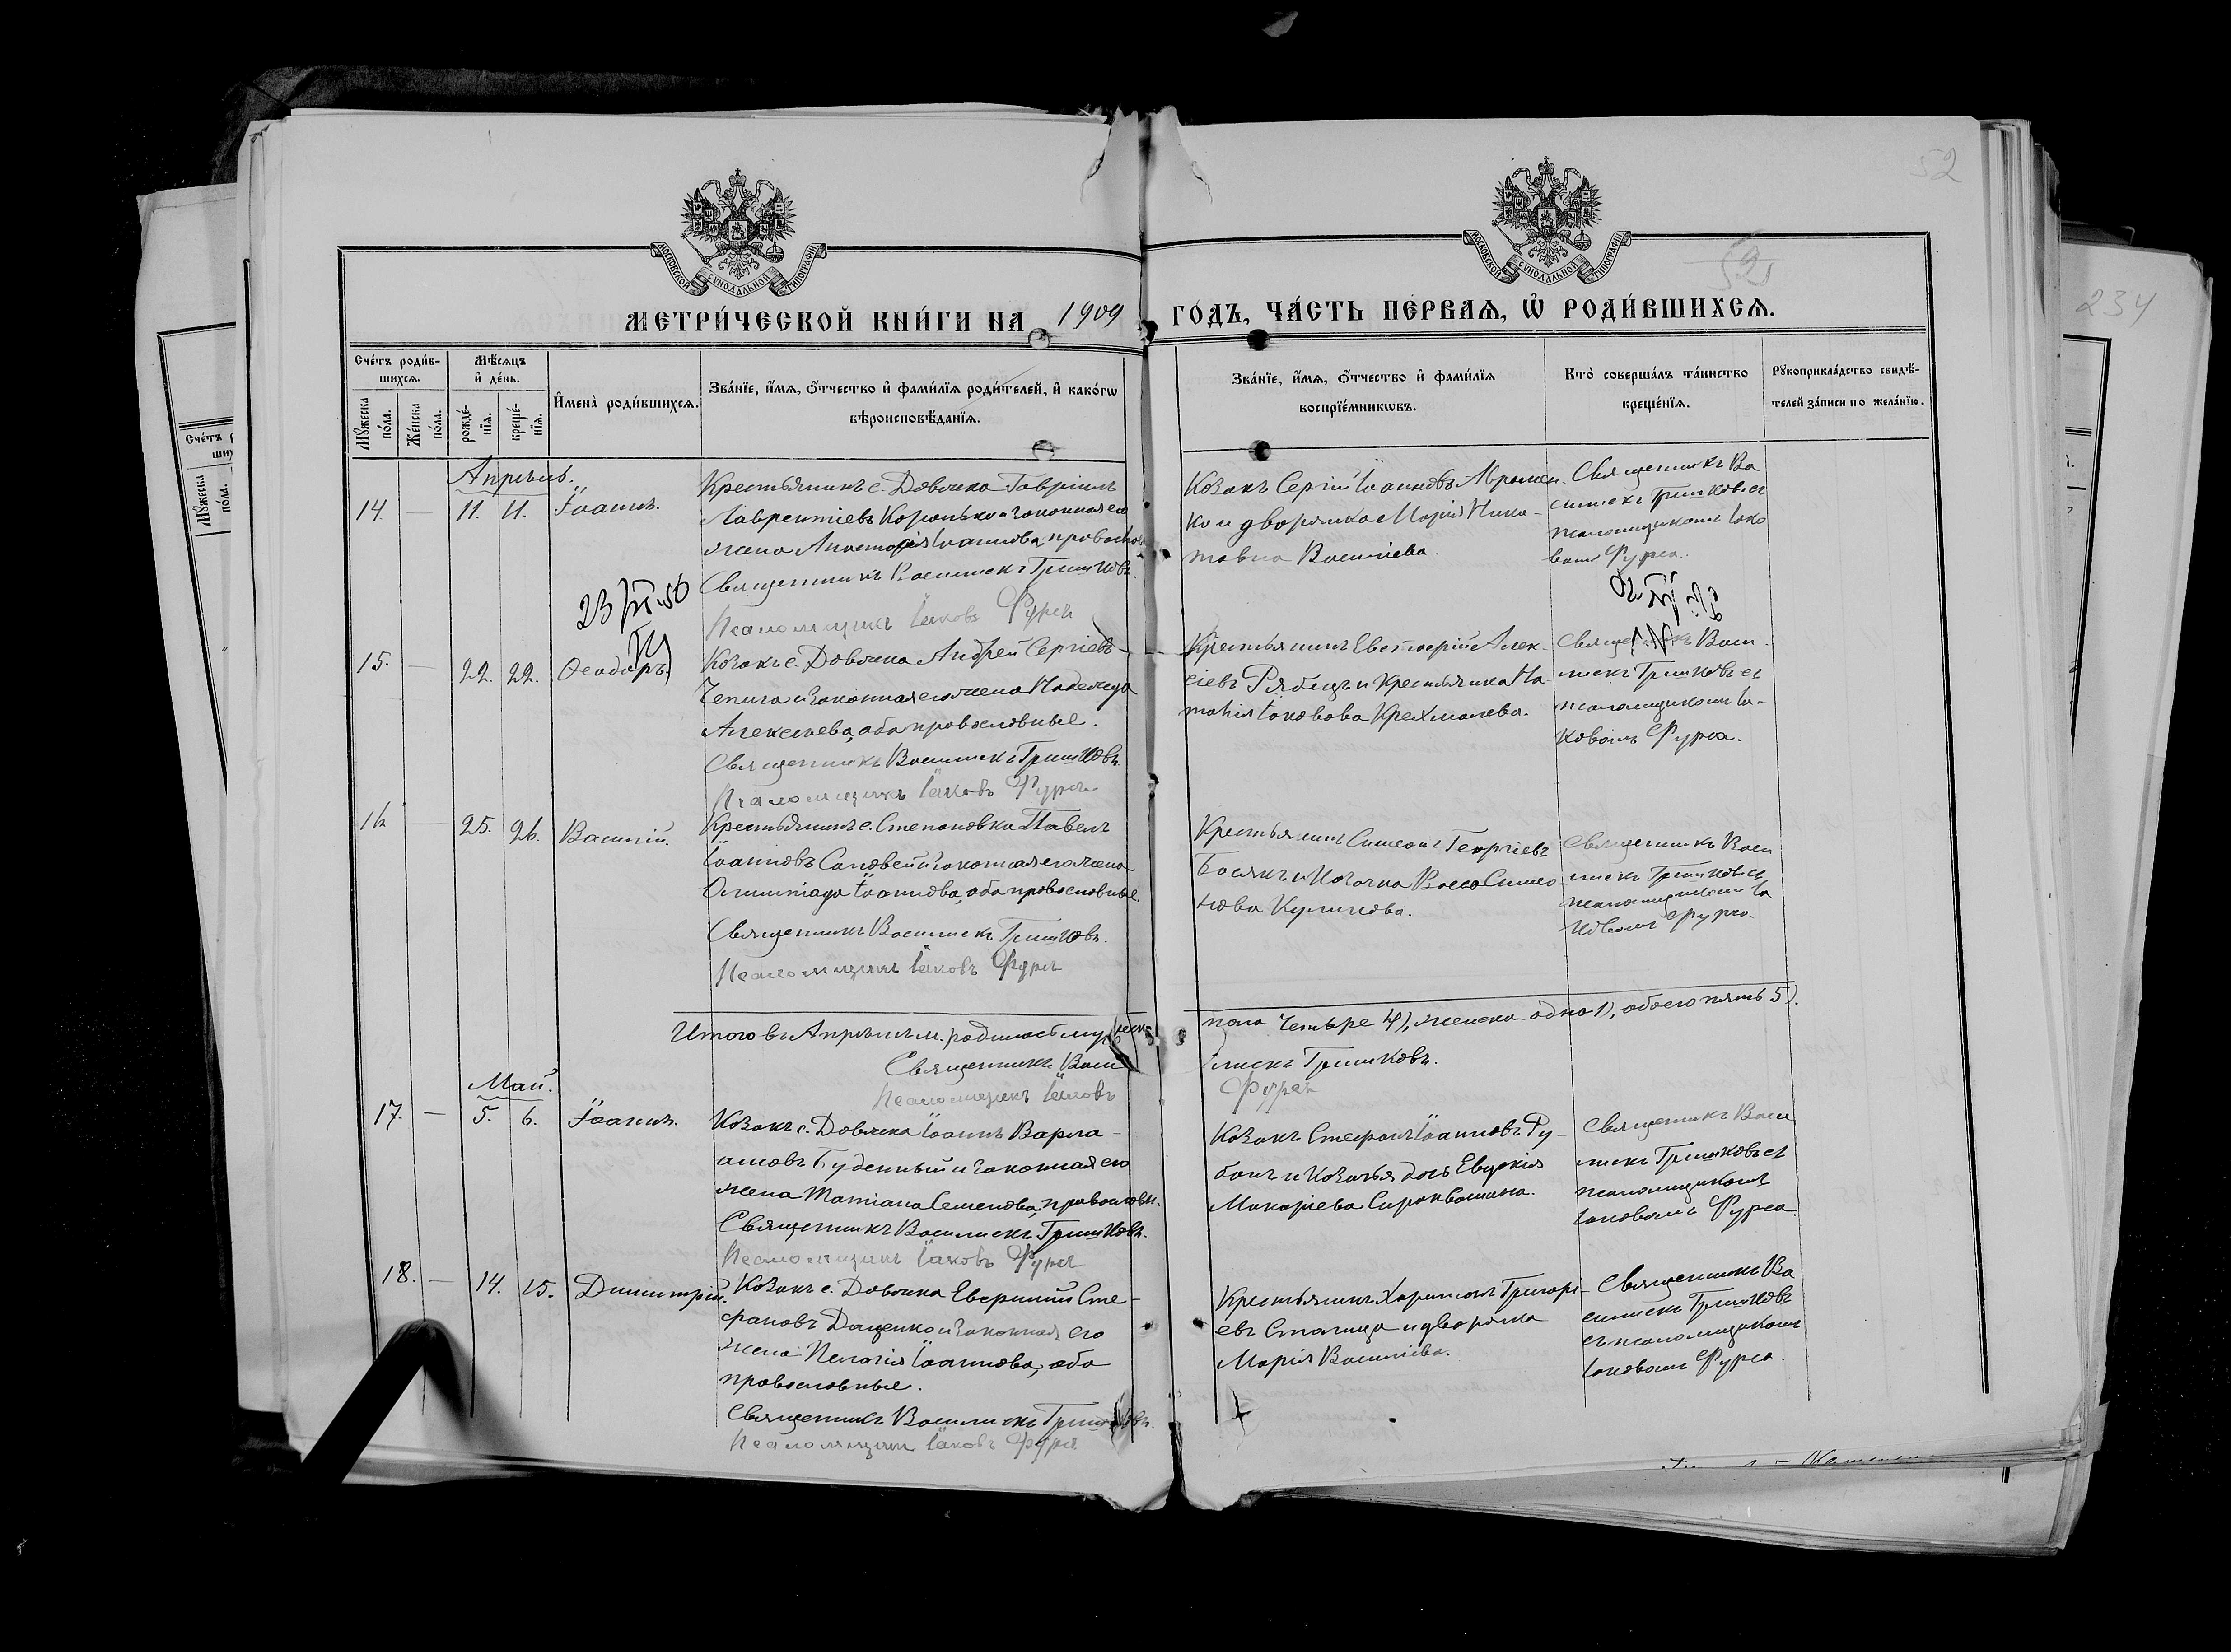 52
МОСКОВСКОЙ СѴНОДАЛЬНОЙ ТИПОГРАФІИ
МОСКОВСКОЙ СѴНОДАЛЬНОЙ ТИПОГРАФІИ
52
234
МЕТРИ́ЧЕСКОЙ КНИ́ГИ НА 1909 ГОДЪ, ЧА́СТЬ ПЕ́РВАѦ, Ѡ҆ РОДИ́ВШИХСѦ.
Сче́тъ роди́в-
шихсѧ.
Мꙋ́жеска по́ла.
Же́нска по́ла.
Мѣ́сѧцъ
и҆ де́нь.
рожде́-
нїѧ.
креще́-
нїѧ.
И҆мена̀ роди́вшихсѧ.
Зва́нїе, и҆́мѧ, ѻ҆́тчество и҆ фами́лїѧ роди́телей, и҆ како́гѡ
вѣроисповѣ́данїѧ.
Зва́нїе, и҆́мѧ, ѻ҆́тчество и҆ фами́лїѧ
воспрїе́мникѡвъ.
Кто̀ соверша́лъ та́инство
креще́нїѧ.
Рꙋкоприкла́дство свидѣ́-
телей за́писи по жела́нїю.
Апрѣль.
14. — 11. 11. Іоаннъ.
Крестьянинъ с. Довжика Гавріилъ
Лаврентіевъ Коронько и законная его
жена Анастасія Іоаннова, православн.
Священникъ Василискъ Гришковъ.
Псаломщикъ Іаковъ Фурса
Козакъ Сергій Іоанновъ Авромен-
ко и дворянка Марія Ника-
Васильева.
Священникъ Ва
силискъ Гришковъ съ
псаломщикомъ Іако
вомъ Фурса.
15. — 22. 22. Ѳеодоръ.
Козакъ с. Довжика Андрей Сергіевъ
Чепига и законная его жена Надежда
Алексѣева, оба православные.
Священникъ Василискъ Гришковъ.
Псаломщикъ Іаковъ Фурса
Крестьянинъ Евстафій Алек-
сіевъ Рябецъ и крестьянка На-
талія Іаковова Крехмалева.
Священникъ Васи-
лискъ Гришковъ съ
псаломщикомъ Іа-
ковомъ Фурса.
16 — 25. 26. Василій.
Крестьянинъ с. Степановка Павелъ
Іоанновъ Соловей и законная его жена
Олимпіада Іоаннова, оба православные.
Священникъ Василискъ Гришковъ.
Псаломщикъ Іаковъ Фурса
Крестьянинъ Симеонъ Георгіевъ
Босякъ и козачка Васса Симео-
нова Куликова.
Священникъ Васи
лискъ Гришковъ съ
псаломщикомъ Іа
ковомъ Фурса.
Итого въ Апрѣлѣ м. родилось мужеска пола четыре 4), женска одно 1), обоего пять 5).
Священникъ Василискъ Гришковъ.
Псаломщикъ Іаковъ Фурса
Май.
17. — 5. 6. Іоаннъ.
Козакъ с. Довжика Іоаннъ Варла-
амовъ Буденный и законная его
жена Татіана Семенова, православн.
Священникъ Василискъ Гришковъ.
Псаломщикъ Іаковъ Фурса
Козакъ Стефанъ Іоанновъ Ру-
банъ и козачья дочь Евдокія
Макаріева Сыроквашина.
Священникъ Васи
лискъ Гришковъ съ
псаломщикомъ
Іаковомъ Фурса.
18. — 14. 15. Димитрій.
Козакъ с. Довжика Сте-
фановъ Даценко и законная его
жена Пелагія Іоаннова, оба
православные.
Священникъ Василискъ Гришковъ.
Псаломщикъ Іаковъ Фурса
Крестьянинъ Харитонъ Григорі-
евъ Сталица и дворянка
Марія Васильева.
Священникъ Ва
силискъ Гришковъ
съ псаломщикомъ
Іаковомъ Фурса.